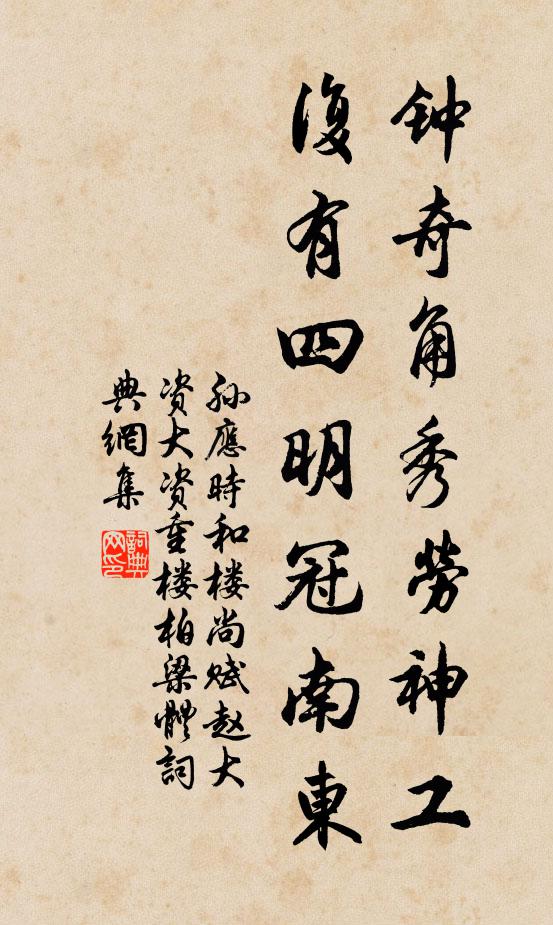 钟奇角秀劳神工
復有四明冠南東
孙應時和楼尚赋赵大
资大资重楼柏梁體詞
典網集
詞典网印